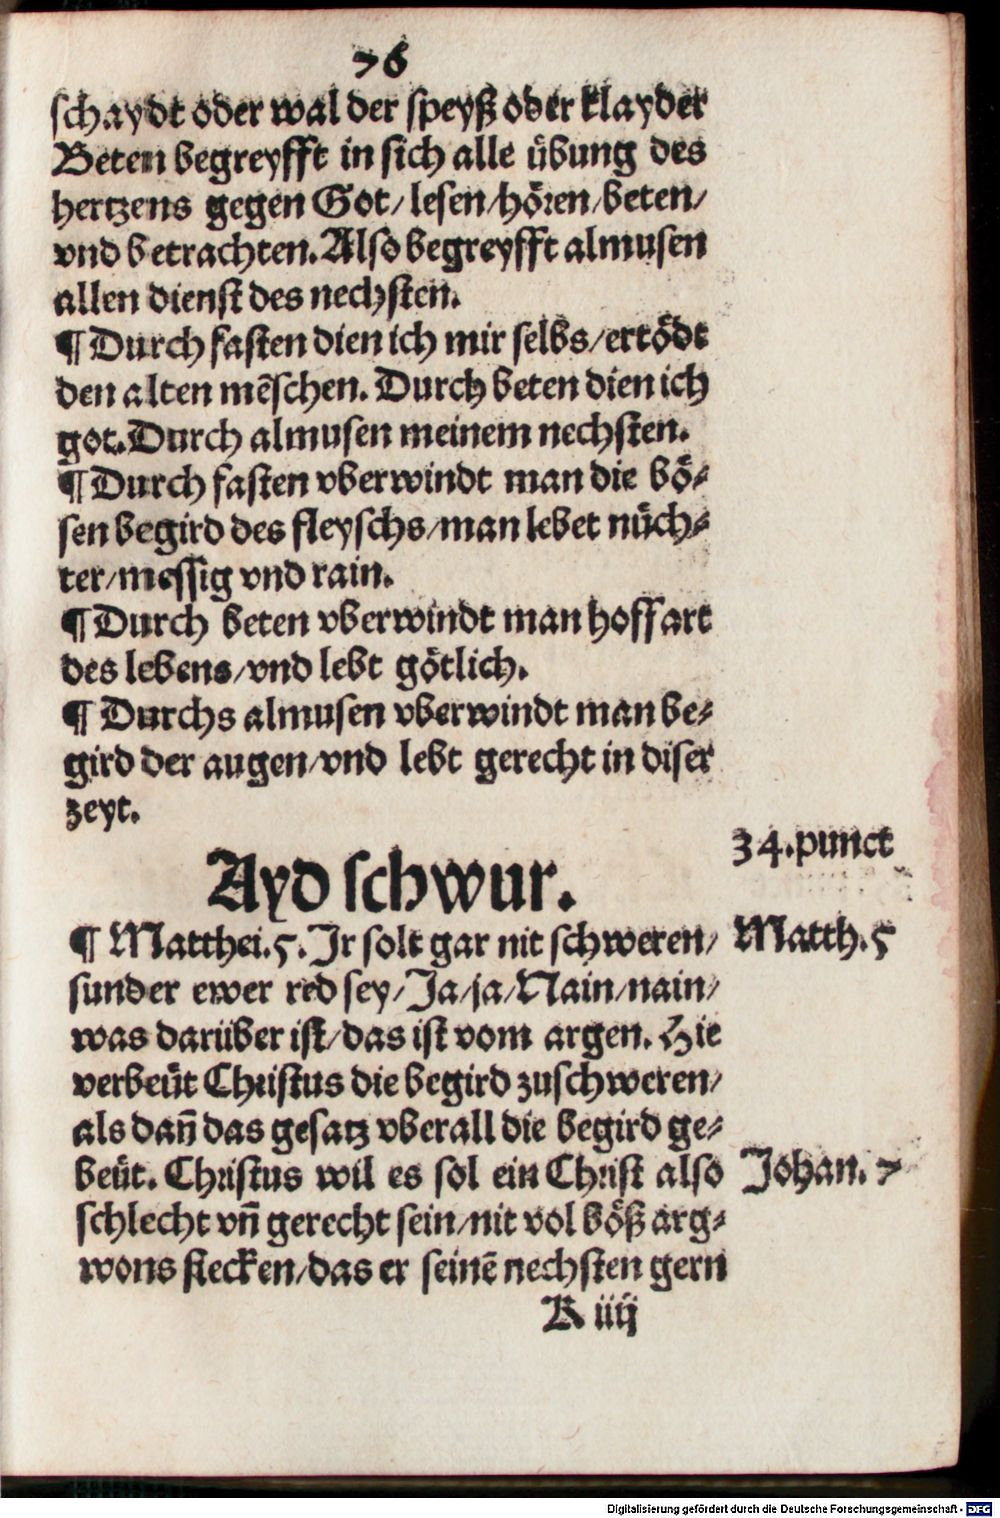 76
schaydt oder wal der speyß oder klayder
Beten begreyfft in sich alle übung des
hertzens gegen Got/ lesen/hören/beten/
vnd betrachten. Also begreyfft almusen
allen dienst des nechsten.
¶ Durch fasten dien ich mir selbs/ertödt
den alten mẽschen. Durch beten dien ich
got. Durch almusen meinem nechsten.
¶ Durch fasten vberwindt man die bö⸗
sen begird des fleyschs/man lebet nüch⸗
ter/messig vnd rain.
¶ Durch beten vberwindt man hoffart
des lebens/vnd lebt götlich.
¶ Durchs almusen vberwindt man be⸗
gird der augen/vnd lebt gerecht in diser
zeyt.
34.punct
Ayd schwur.
¶ Matthei.5. Ir solt gar nit schweren/
Matth.5
sunder ewer red sey/Ja/ja/Nain/nain/
was darüber ist/das ist vom argen. Hie
verbeüt Christus die begird zuschweren/
als dañ das gesatz vberall die begird ge⸗
beüt. Christus wil es sol ein Christ also
Johan. 7
schlecht vñ gerecht sein/nit vol böß arg⸗
wons stecken/das er seinẽ nechsten gern
K iiij
Digitalisierung gefördert durch die Deutsche Forschungsgemeinschaft - DFG